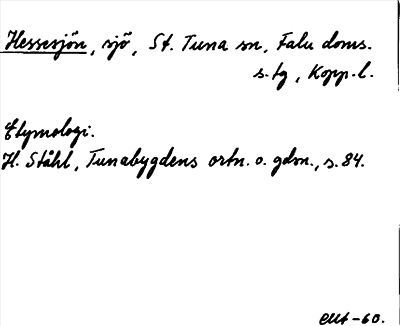 Hessesjön, sjö, St. Tuna sn, Falu doms.
s. tg, Kopp. l.
Etymologi.
H. Ståhl, Tunabygdens ortn. o. gdsn., s. 84.
-60.